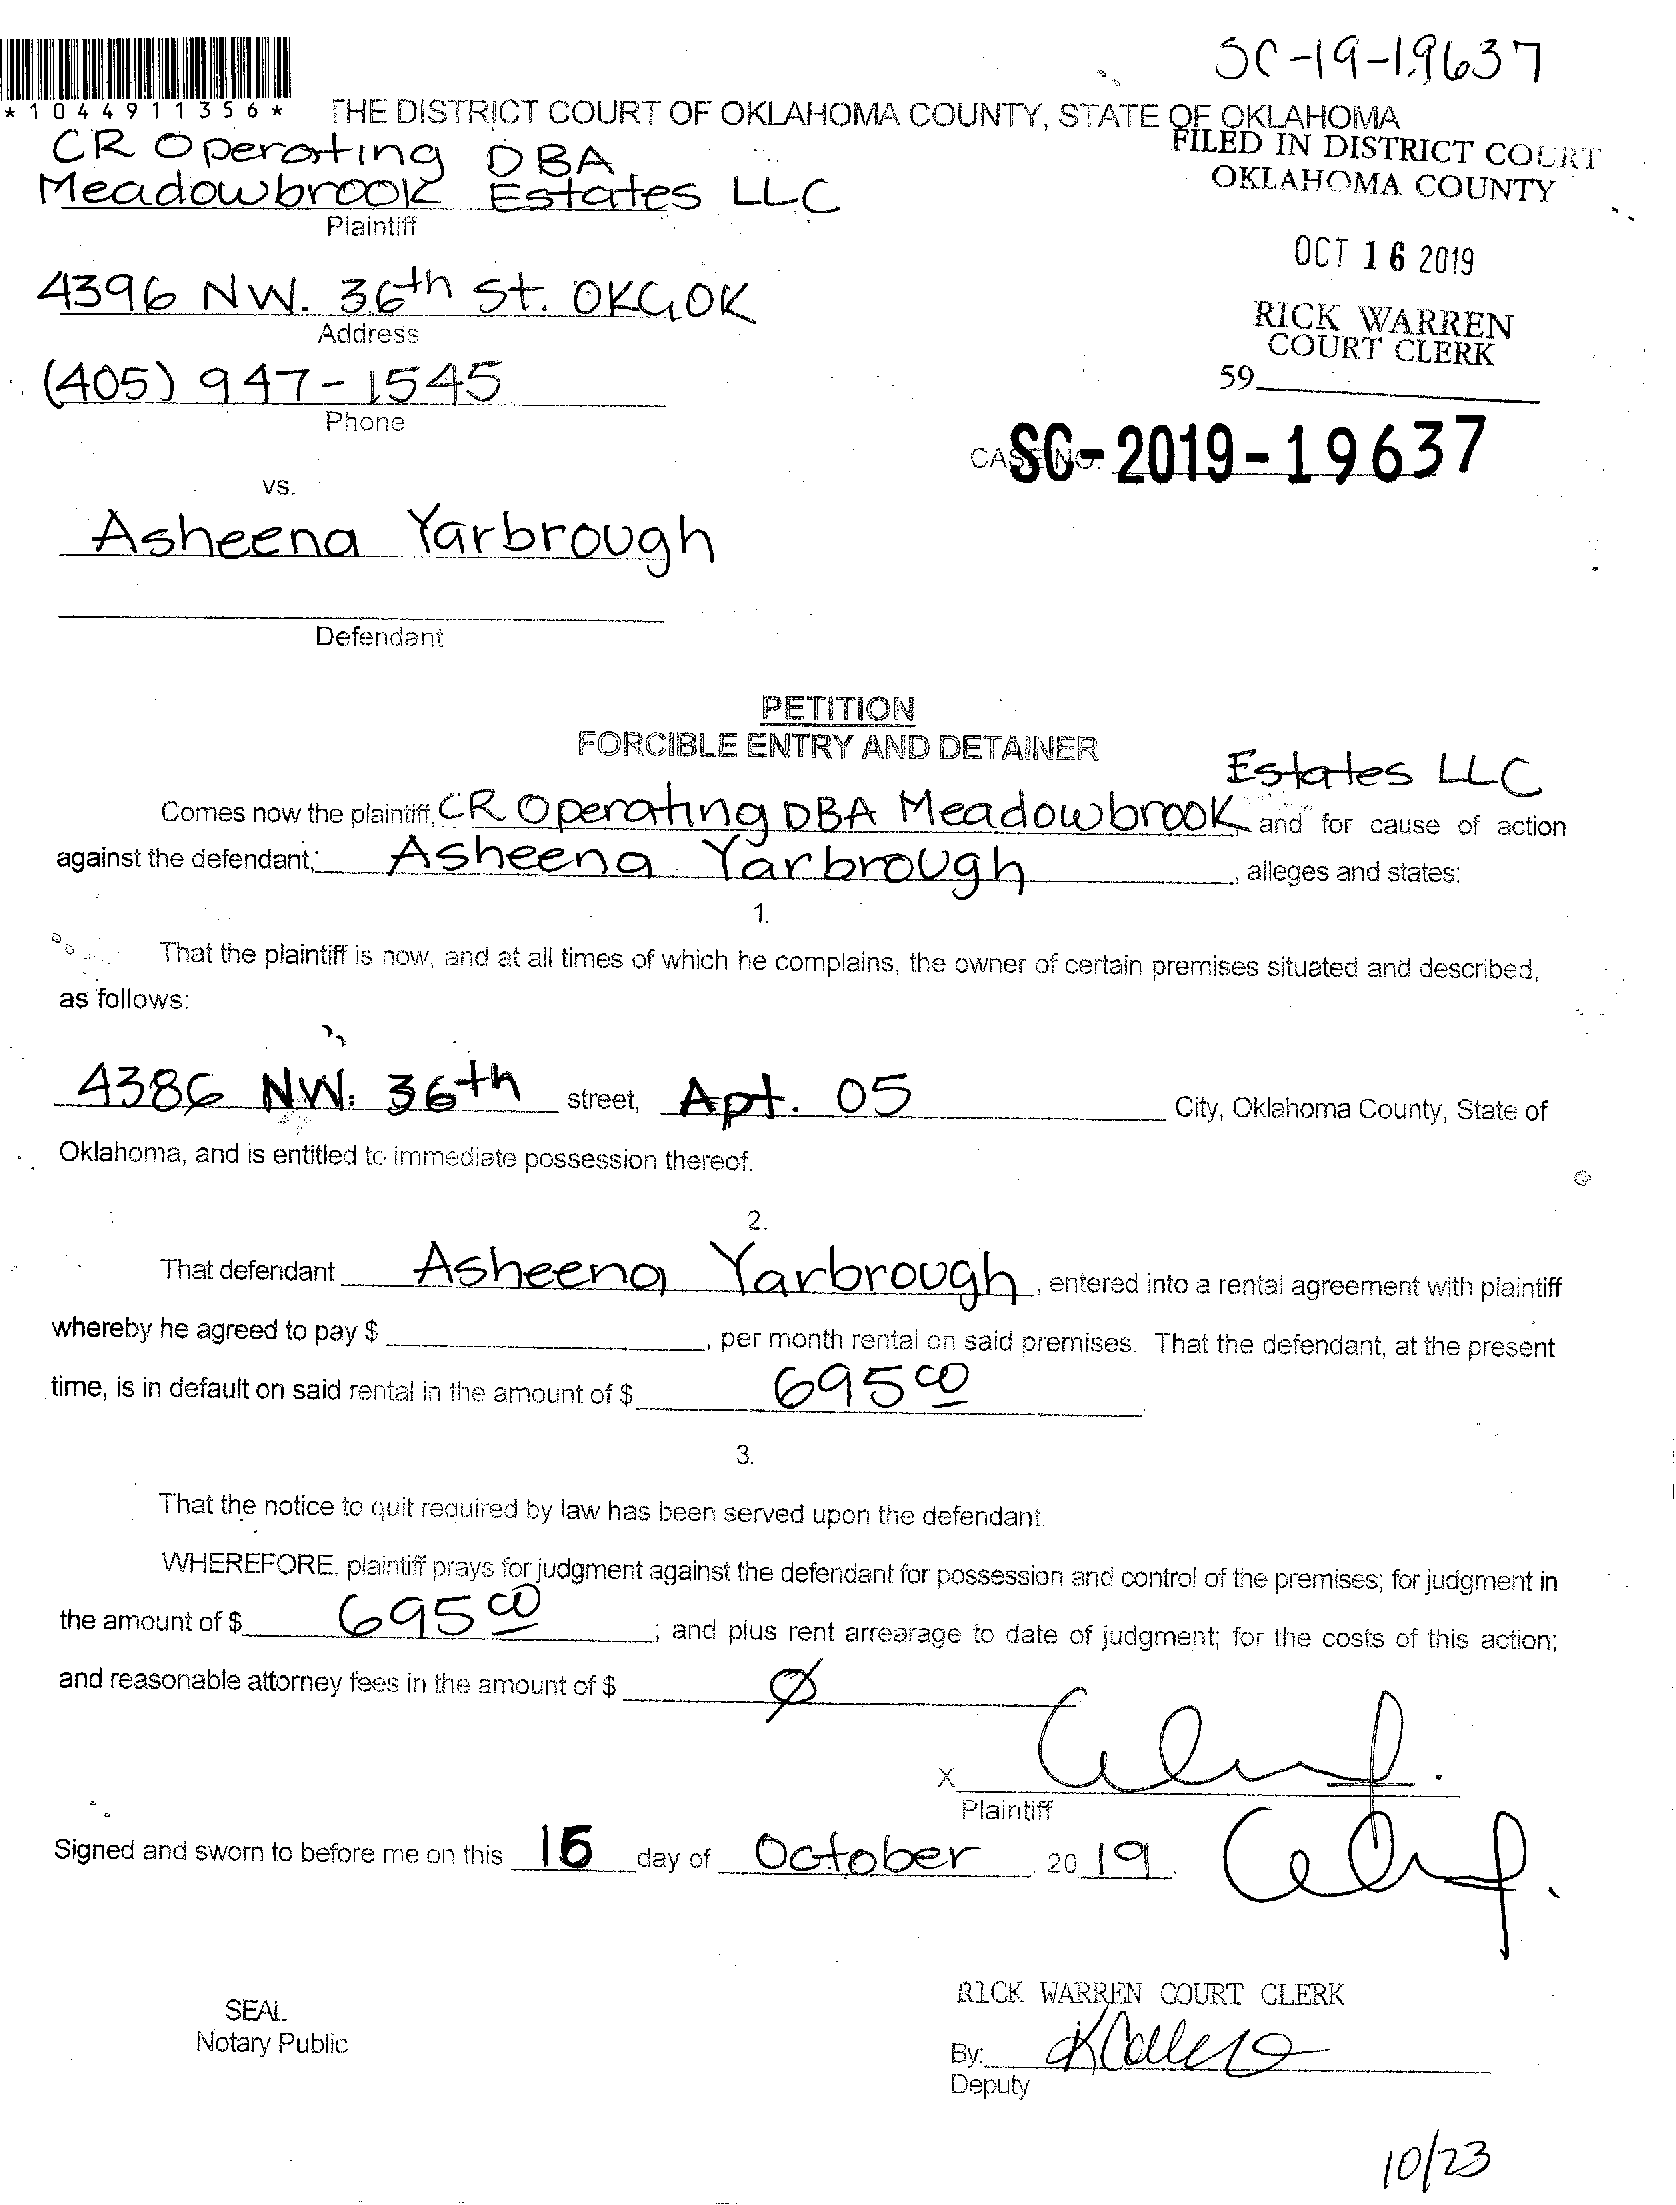 SC-19-19637
*1044911356*
THE DISTRICT COURT OF OKLAHOMA COUNTY, STATE OF OKLAHOMA
FILED IN DISTRICT COURT
OKLAHOMA COUNTY
CR Operating DBA
Meadowbrook Estates LLC
Plaintiff
OCT 16 2019
4396 NW. 36th St. OKC, OK
Address
RICK WARREN
COURT CLERK
59
(405) 947-1545
Phone
CASE NO. SC-2019-19637
vs.
Asheena Yarbrough
Defendant
PETITION
FORCIBLE ENTRY AND DETAINER
Estates LLC
Comes now the plaintiff, CR Operating DBA Meadowbrook and for cause of action
against the defendant; Asheena Yarbrough, alleges and states:
1.
That the plaintiff is now, and at all times of which he complains, the owner of certain premises situated and described,
as follows:
4386 NW. 36th street, Apt. 05 City, Oklahoma County, State of
Oklahoma, and is entitled to immediate possession thereof.
2.
That defendant Asheena Yarbrough, entered into a rental agreement with plaintiff
whereby he agreed to pay $ , per month rental on said premises. That the defendant, at the present
time, is in default on said rental in the amount of $ 695 00
3.
That the notice to quit required by law has been served upon the defendant.
WHEREFORE, plaintiff prays for judgment against the defendant for possession and control of the premises; for judgment in
the amount of $ 695 00 ; and plus rent arrearage to date of judgment; for the costs of this action;
and reasonable attorney fees in the amount of $ Ø
X
Plaintiff
Signed and sworn to before me on this 16 day of October, 20 19.
RICK WARREN COURT CLERK
SEAL
Notary Public
By:
Deputy
10/23